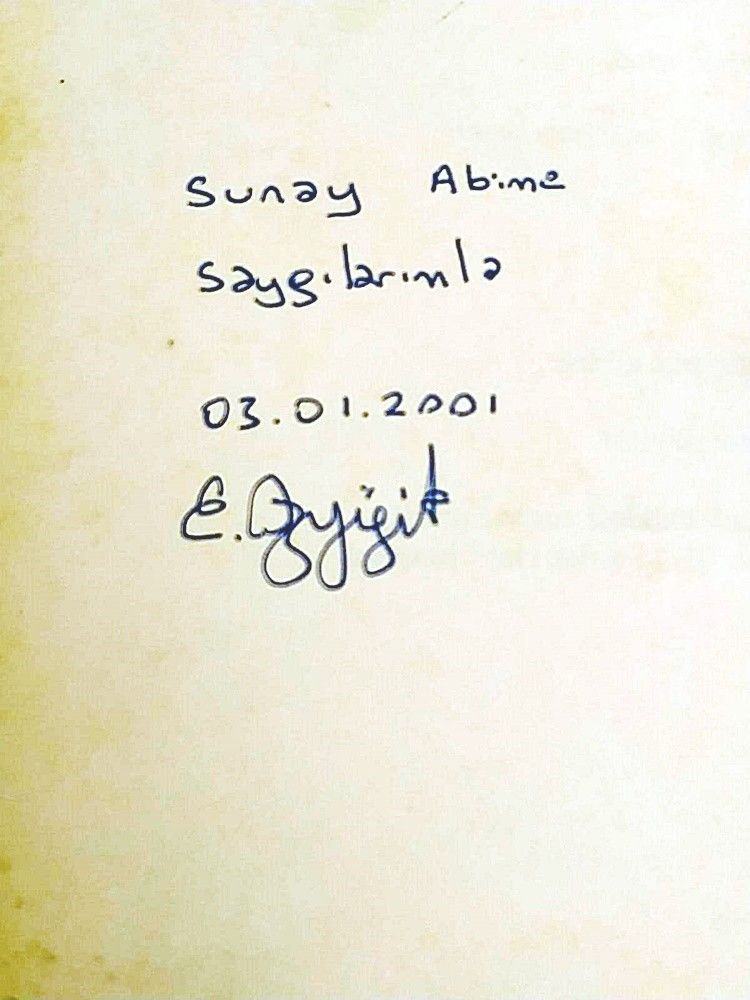 Sunay Abime
Saygılarımla
03.01.2001
E. Özyiğit